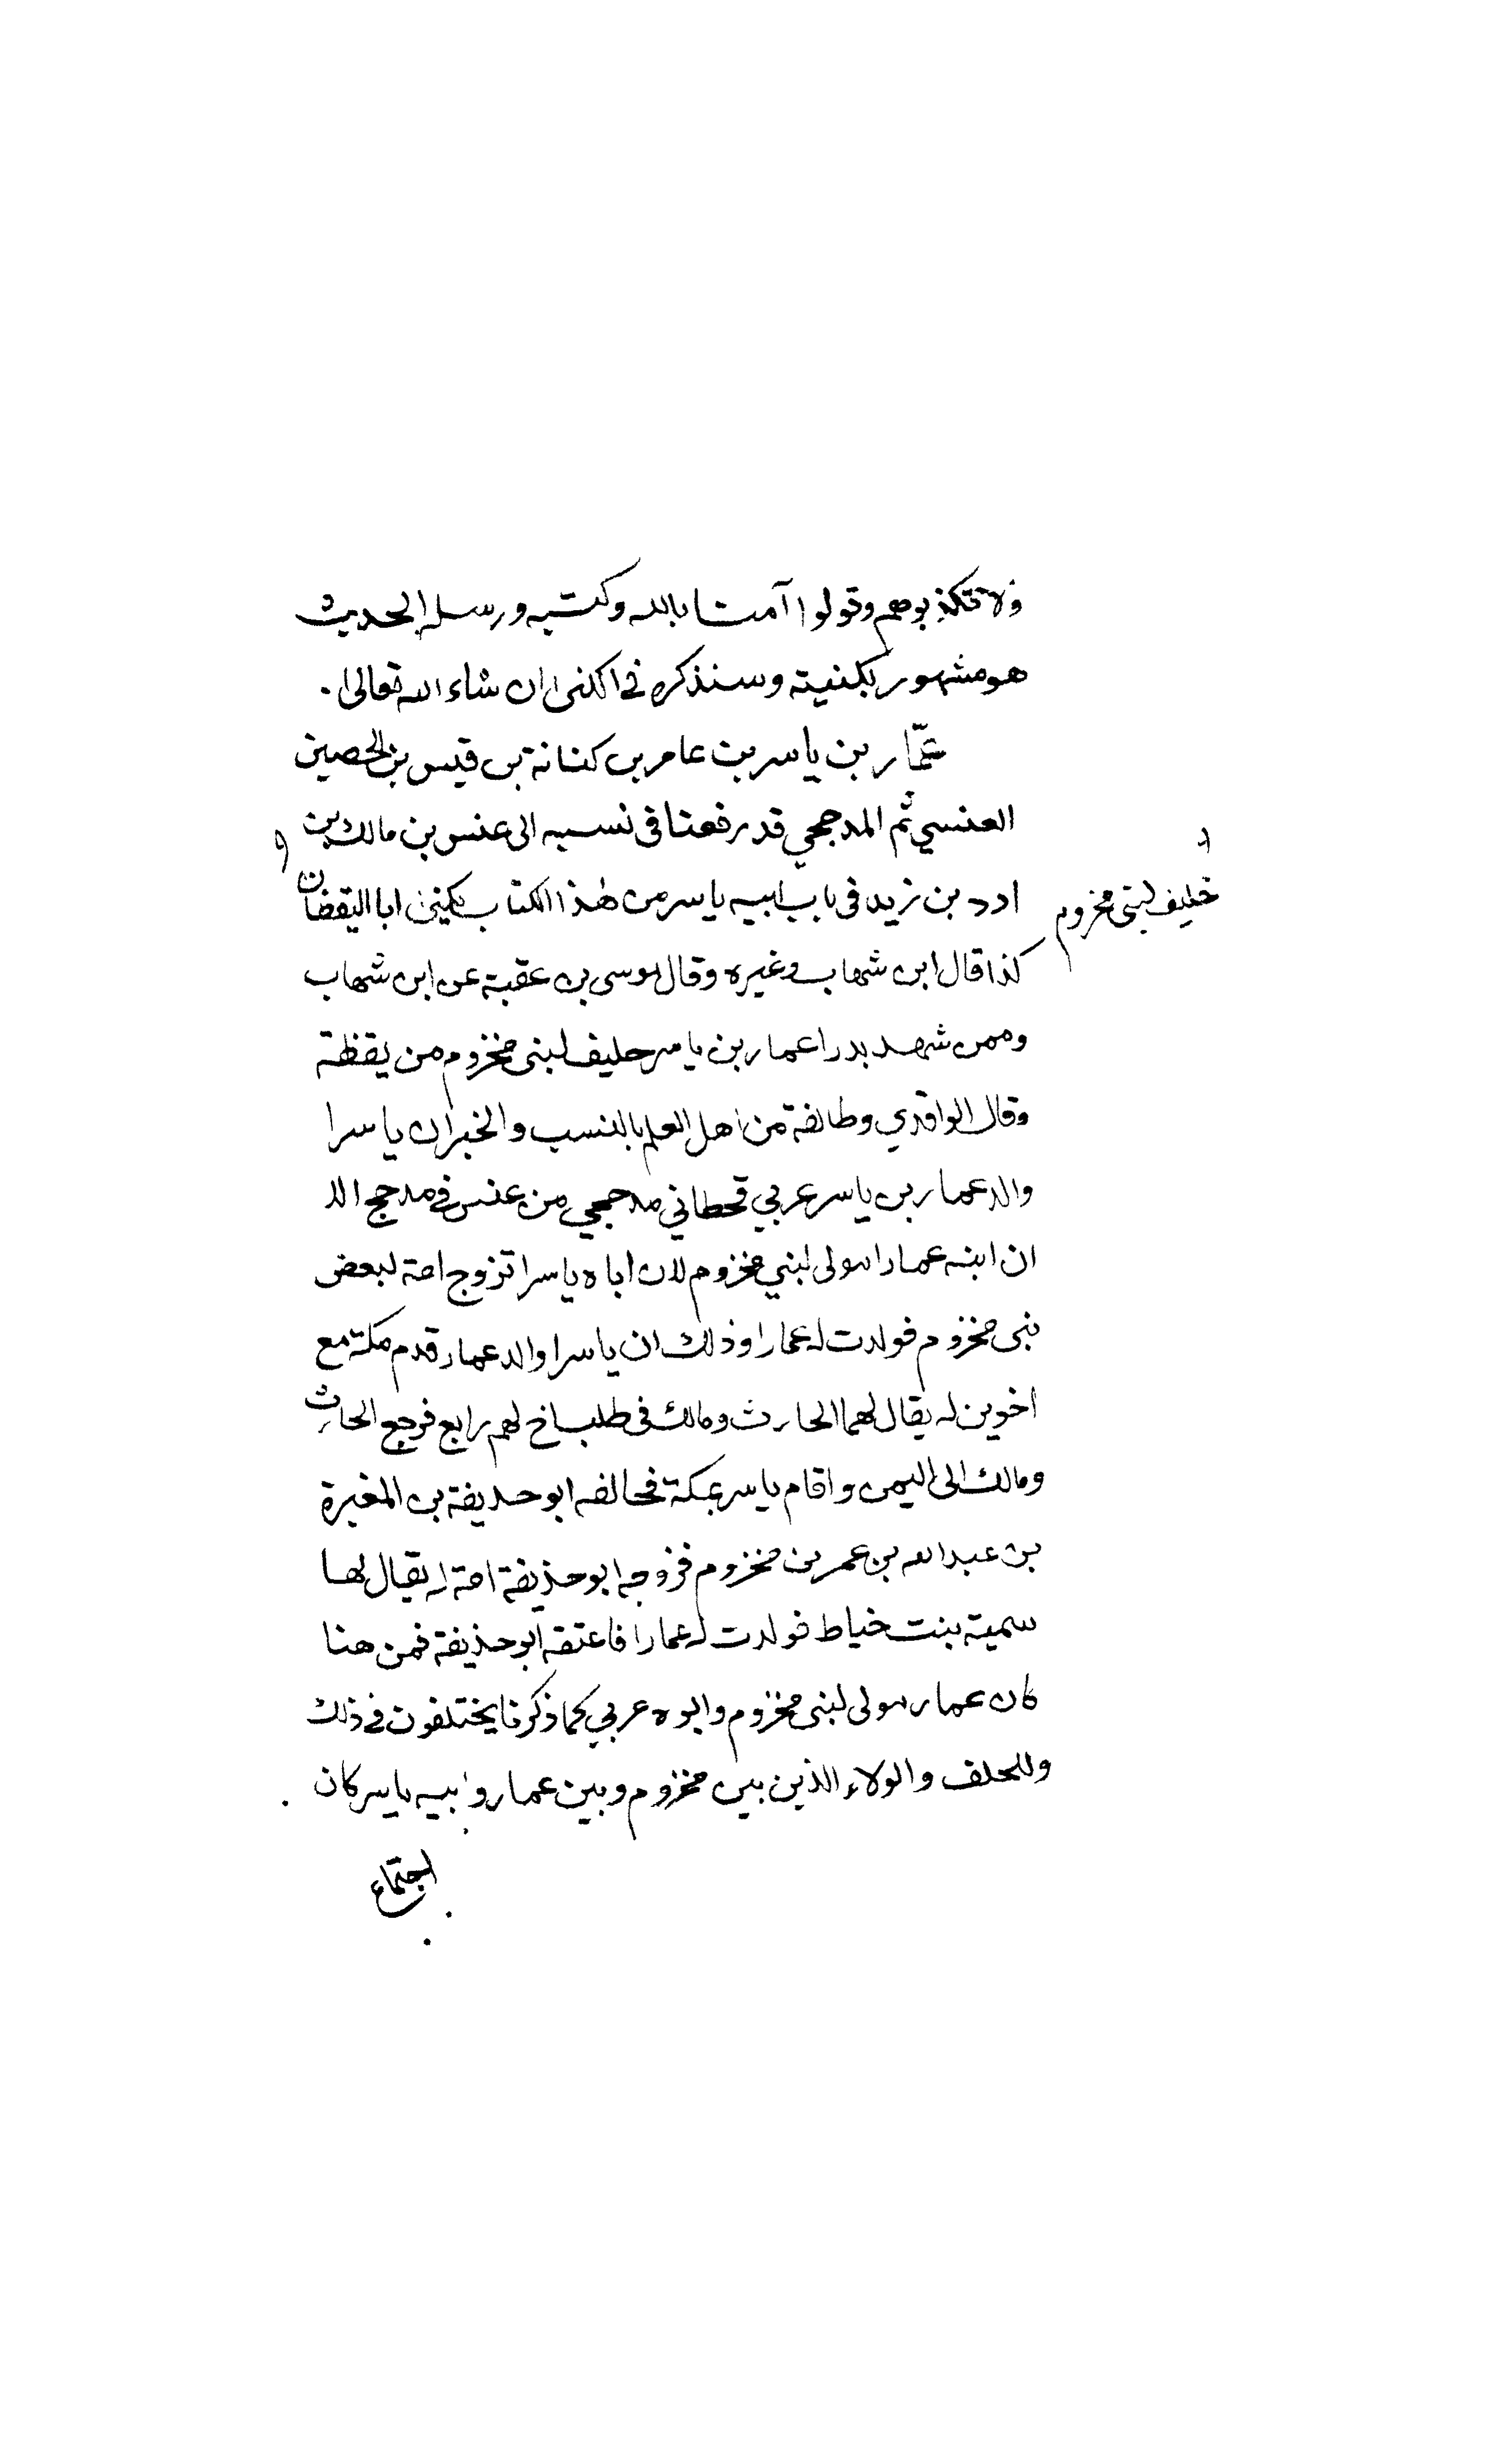 ولا تكذبوهم وقولوا آمنا بالله وكتبه ورسله الحديث
هو مشهور بكنيته وسنذكره في الكنى ان شاء الله تعالى .
عمّار بن ياسر بن عامر بن كنانة بن قيس بن الحصين
العنسي ثم المدحجي قد رفعنا في نسبه الى عنس بن مالك بن
ادد بن زيد في باب ابيه ياسر من هذا الكتاب يكنى ابا اليقظان
حليف لبنى مخزوم
كذا قال ابن شهاب وغيره وقال موسى بن عقبة عن ابن شهاب
وممن شهد بدرا عمار بن ياسر حليف لبنى مخزوم من يقظة
وقال الواقدي وطائفة من اهل العلم بالنسب والخبر ان ياسرا
والد عمار بن ياسر عربي قحطاني مدحجي من عنس في مدحج الا
ان ابنه عمارا مولى لبني مخزوم لان اباه ياسرا تزوج امة لبعض
بنى مخزوم فولدت له عمارا وذلك ان ياسرا والد عمار قدم مكة مع
اخوين له يقال لهما الحارث ومالك في طلب اخ لهم رابع فرجع الحارث
ومالك الى اليمن واقام ياسر بمكة فحالفه ابو حذيفة بن المغيرة
بن عبد الله بن عمر بن مخزوم فزوجه ابو حذيفة امة له يقال لها
سمية بنت خياط فولدت له عمارا فاعتقه ابو حذيفة فمن هنا
كان عمار مولى لبنى مخزوم وابوه عربي كما ذكرنا يختلفون في ذلك
وللحلف والولاء الذين بين مخزوم وبين عمار وابيه ياسر كان
اجتماع